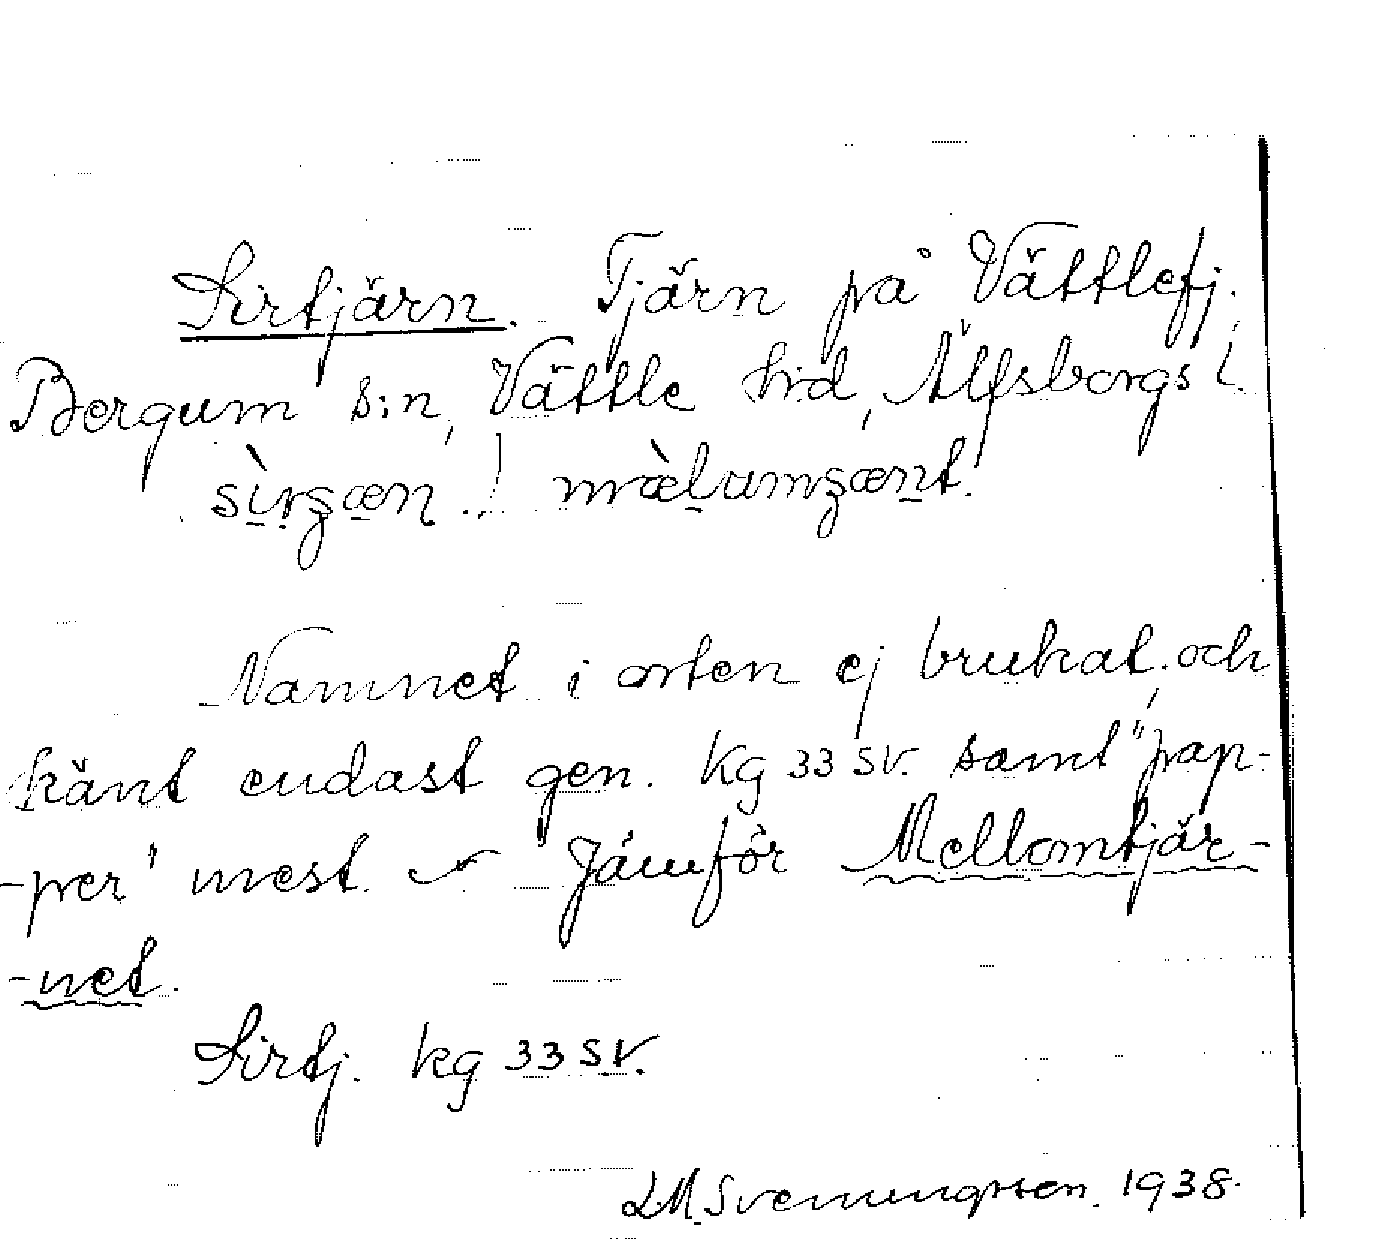 Sirtjärn. Tjärn på Vättlefj.
Bergum s:n, Vättle hd, Älfsborgs l.
sìrʒæn.! mæ̀lumʒænt.
Namnet i orten ej brukat, och
känt endast gen. kg 33 SV. samt "pap-
-per" mest. Jämför Mellomtjär-
-net.
Sirtj. kg 33 SV.
LM. Svenungsson. 1938.